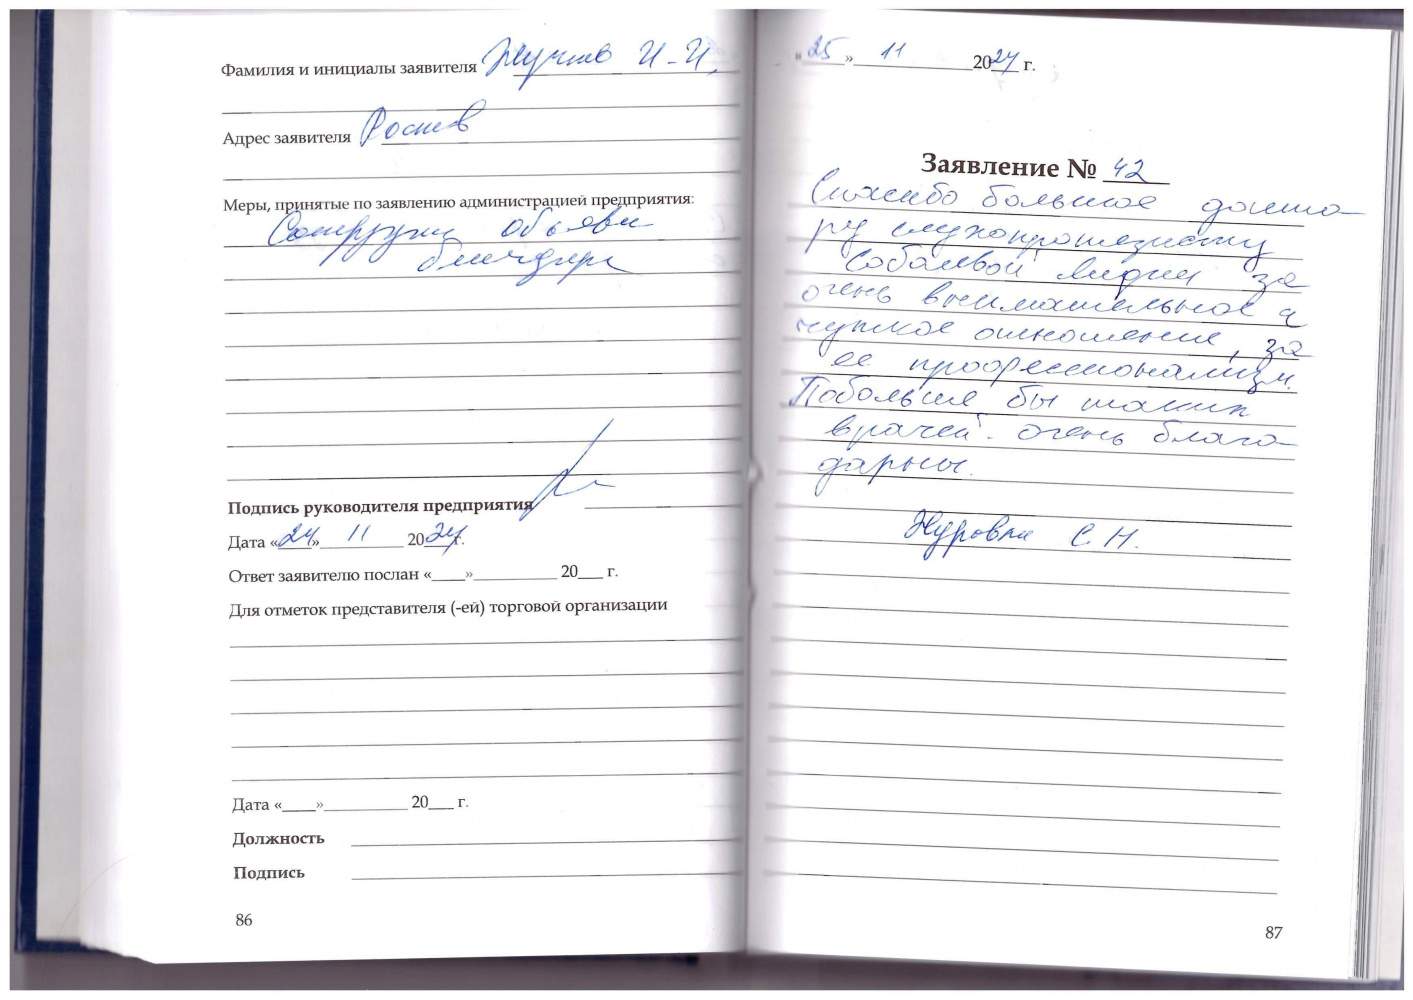 Фамилия и инициалы заявителя И-И.
Адрес заявителя Ростов
Меры, принятые по заявлению администрацией предприятия:
объяви
Подпись руководителя предприятия
Дата «24» 11 2024г.
Ответ заявителю послан «____»__________ 20___ г.
Для отметок представителя (-ей) торговой организации
Дата «____»__________ 20___ г.
Должность
Подпись
86
«25» 11 2024 г.
Заявление № 42
Спасибо большое докто-
ру слухопротезисту
Соболевой Лидии за
очень внимательное и
чуткое отношение, за
ее профессионализм.
Побольше бы таких
врачей. очень благо-
дарны.
С.Н.
87